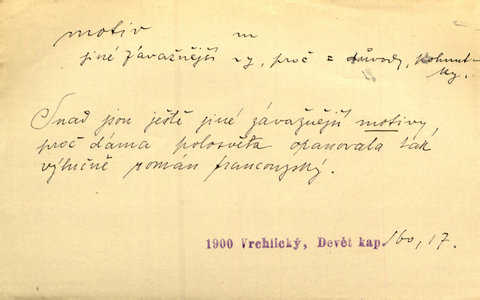 motiv m
jiné závažnější ~y, proč = důvody, pohnut-
ky.
Snad jsou ještě jiné závažnější motivy,
proč dáma polosvěta opanovala tak
výlučně román francouzský.
1900 Vrchlický, Devět kap. 17.